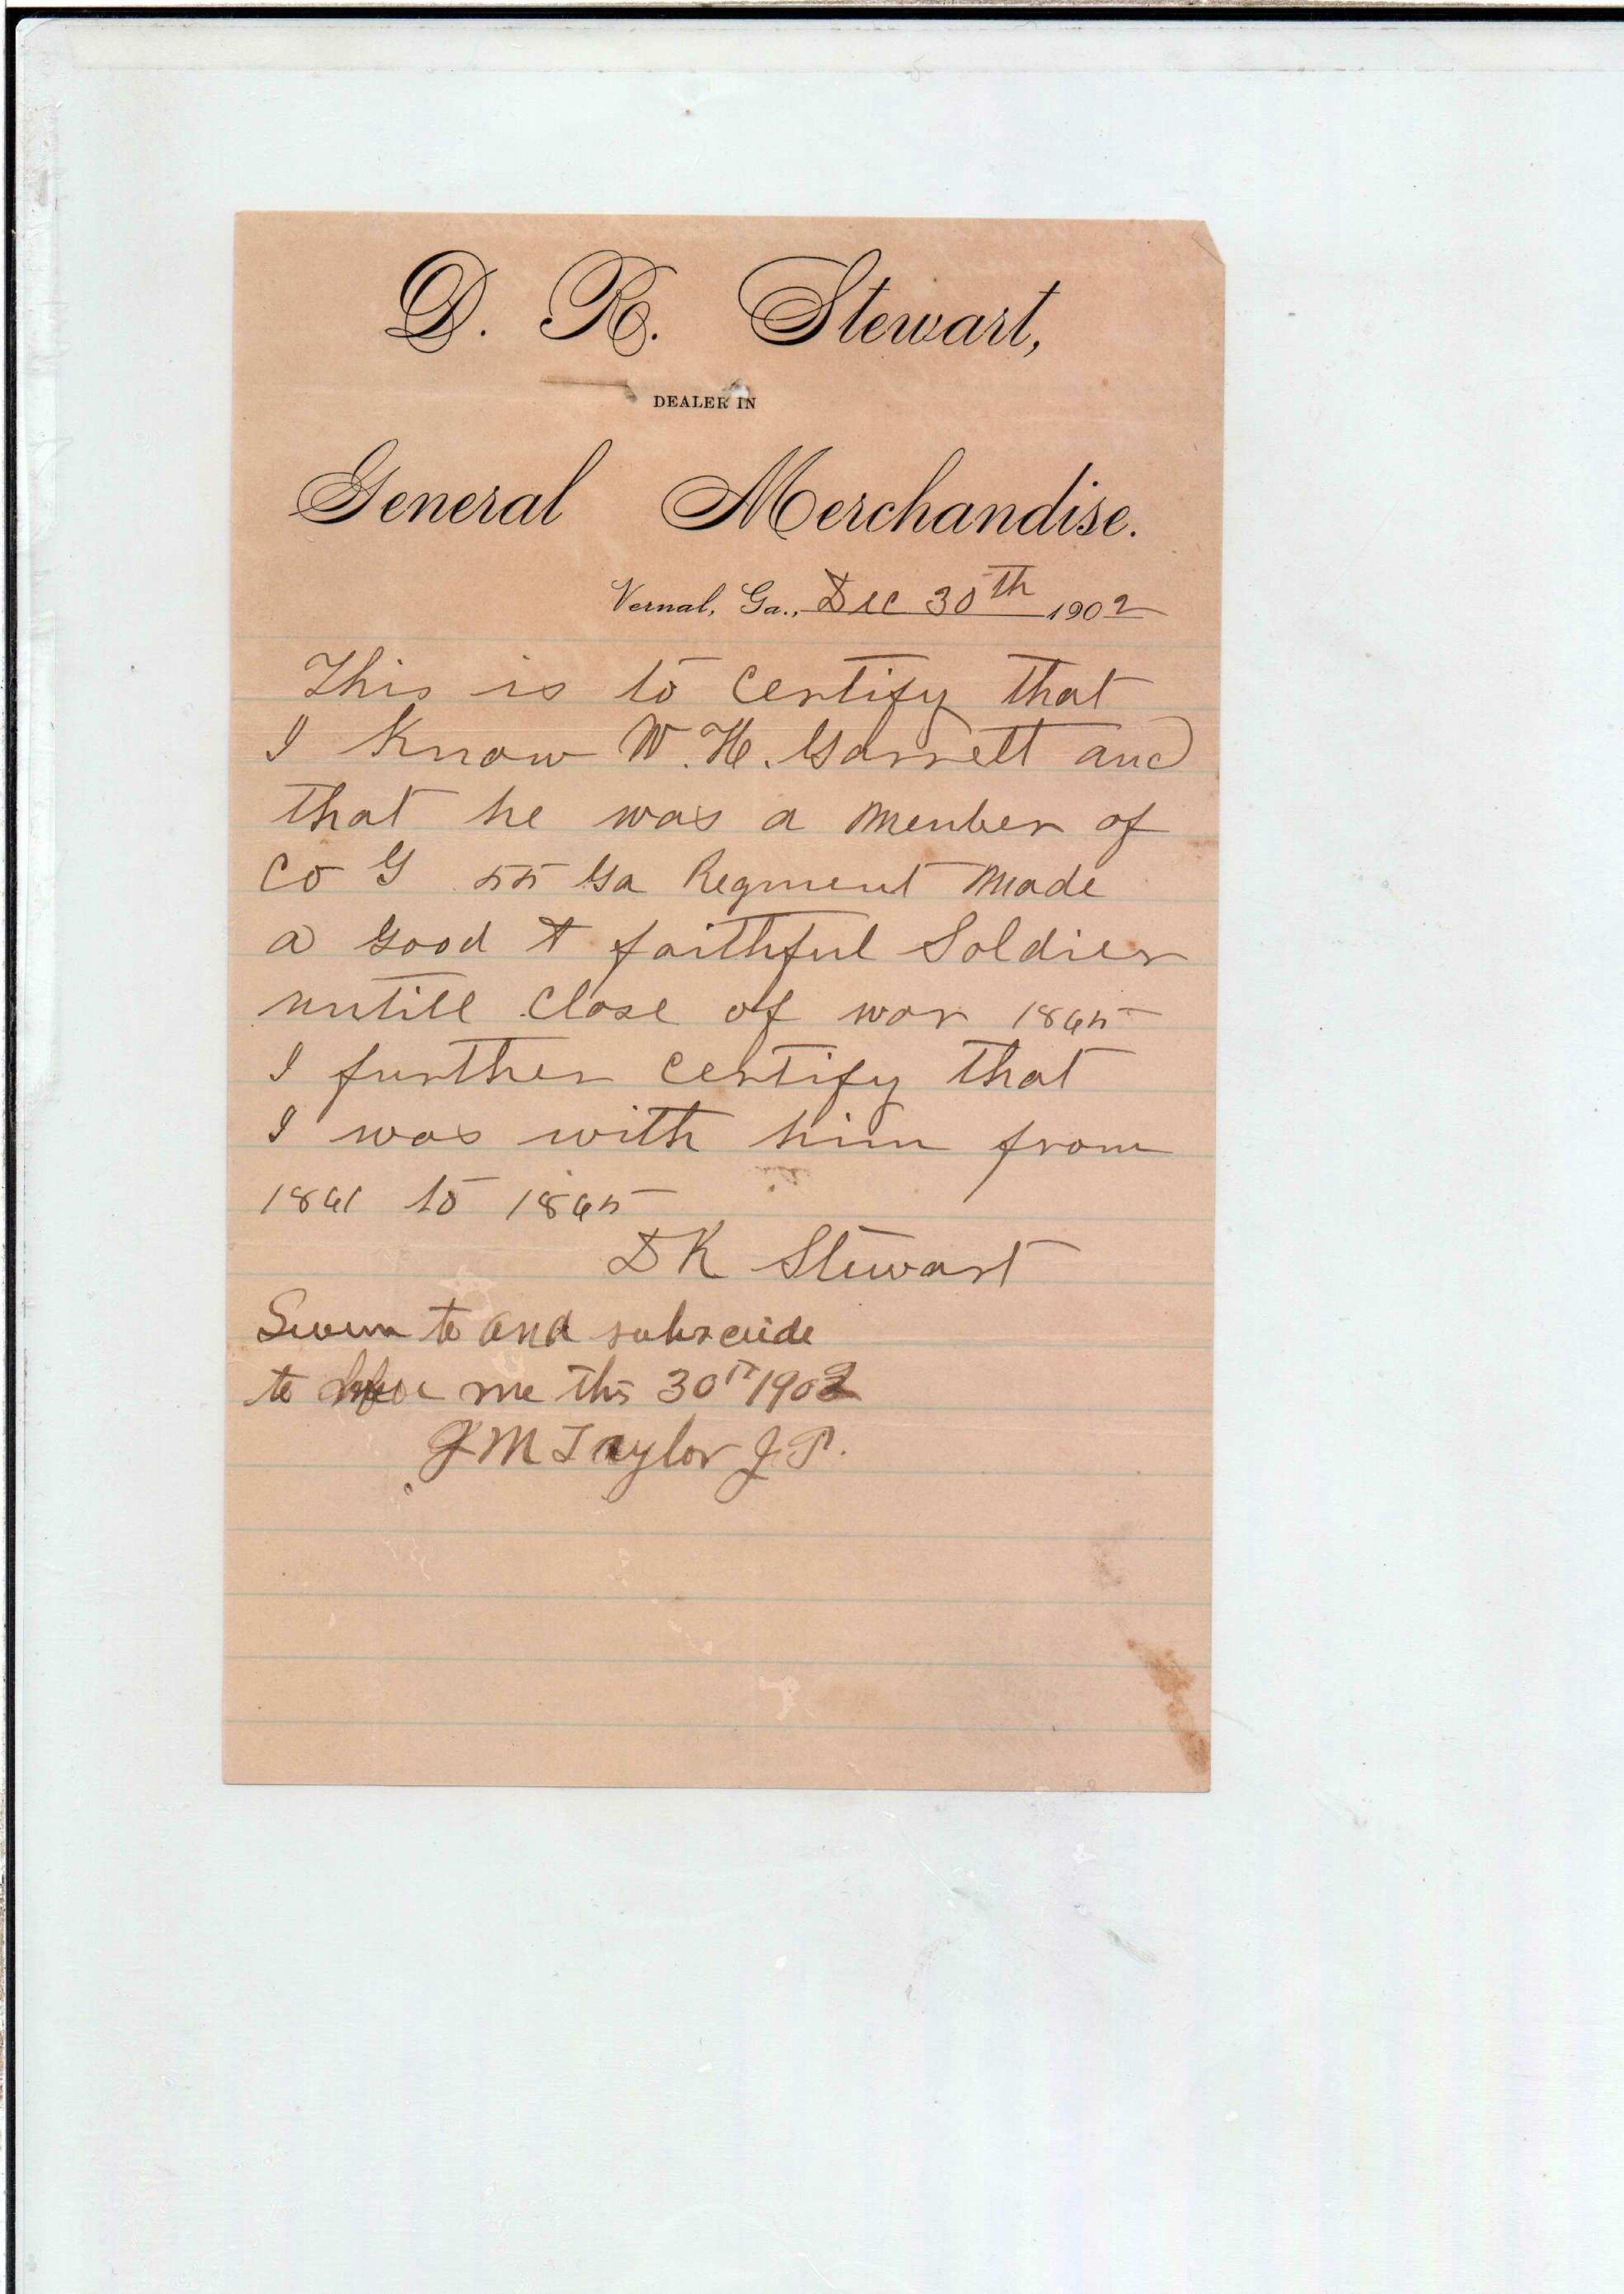 D. R. Stewart,
DEALER IN
General Merchandise.
Vernal, Ga., Dec 30th 1902
This is to certify that
I Know W. H. Garrett and
that he was a member of
Co G 55 Ga Regment made
a good & faithful Soldier
untill Close of war 1865
I further certify that
I was with him from
1861 to 1865
D K Stewart
Sworn to and subscride
to before me this 30th 1902
J M Taylor J. P.